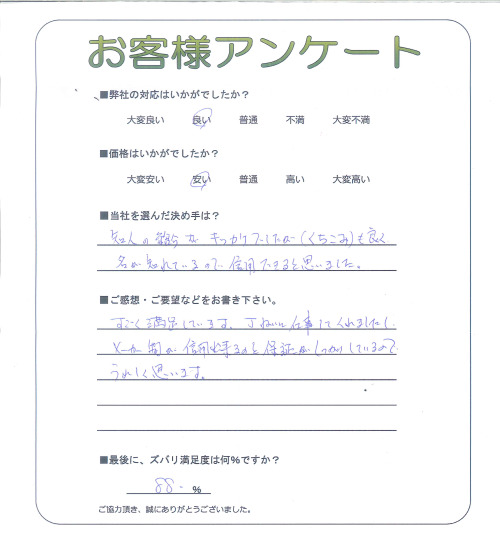 お客様アンケート
■弊社の対応はいかがでしたか？
大変良い 良い 普通 不満 大変不満
■価格はいかがでしたか？
大変安い 安い 普通 高い 大変高い
■当社を選んだ決め手は？
知人の紹介がキッカケでしたが(くちこみ)も良く
名が知れているので信用できると思いました。
■ご感想・ご要望などをお書き下さい。
すごく満足しています。丁ねいに仕事してくれましたし
信用出来るのと保証がしっかりしているので
うれしく思います。
■最後に、ズバリ満足度は何%ですか？
88 %
ご協力頂き、誠にありがとうございました。